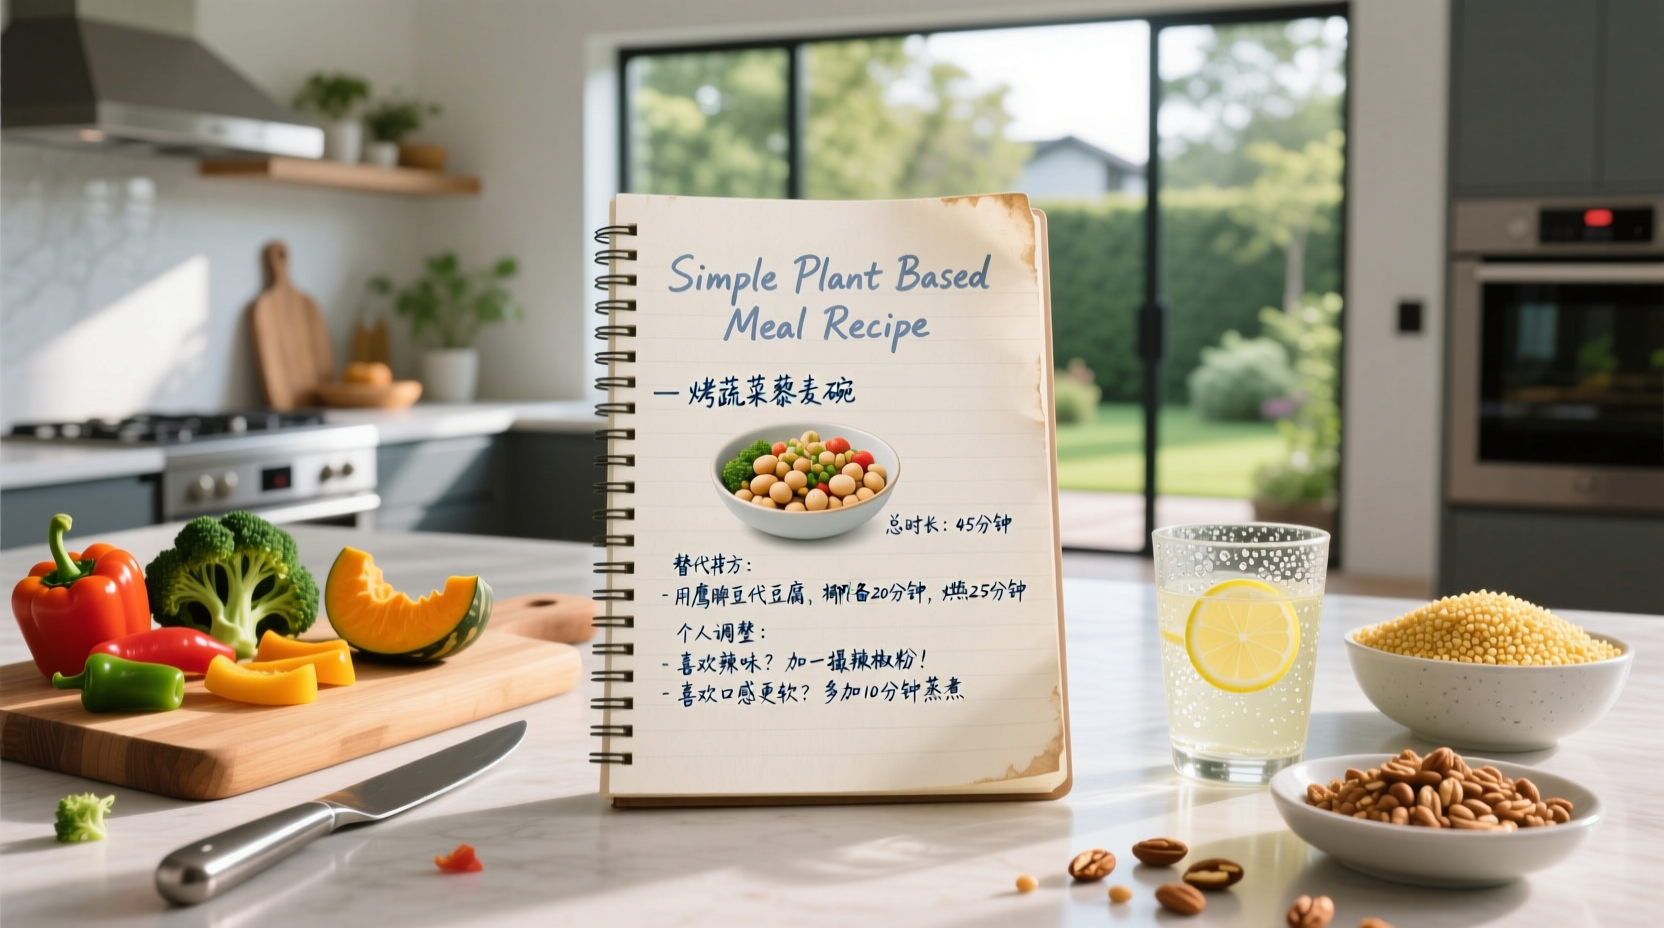 Simple Plant Based
Meal Recipe
— 烤蔬菜藜麦碗
总时长：45分钟
替代方：
- 用鹰豆代豆腐，备20分钟，25分钟
个人调整：
- 喜欢辣味？加一撮辣椒粉！
- 喜欢口感更软？多加10分钟蒸煮